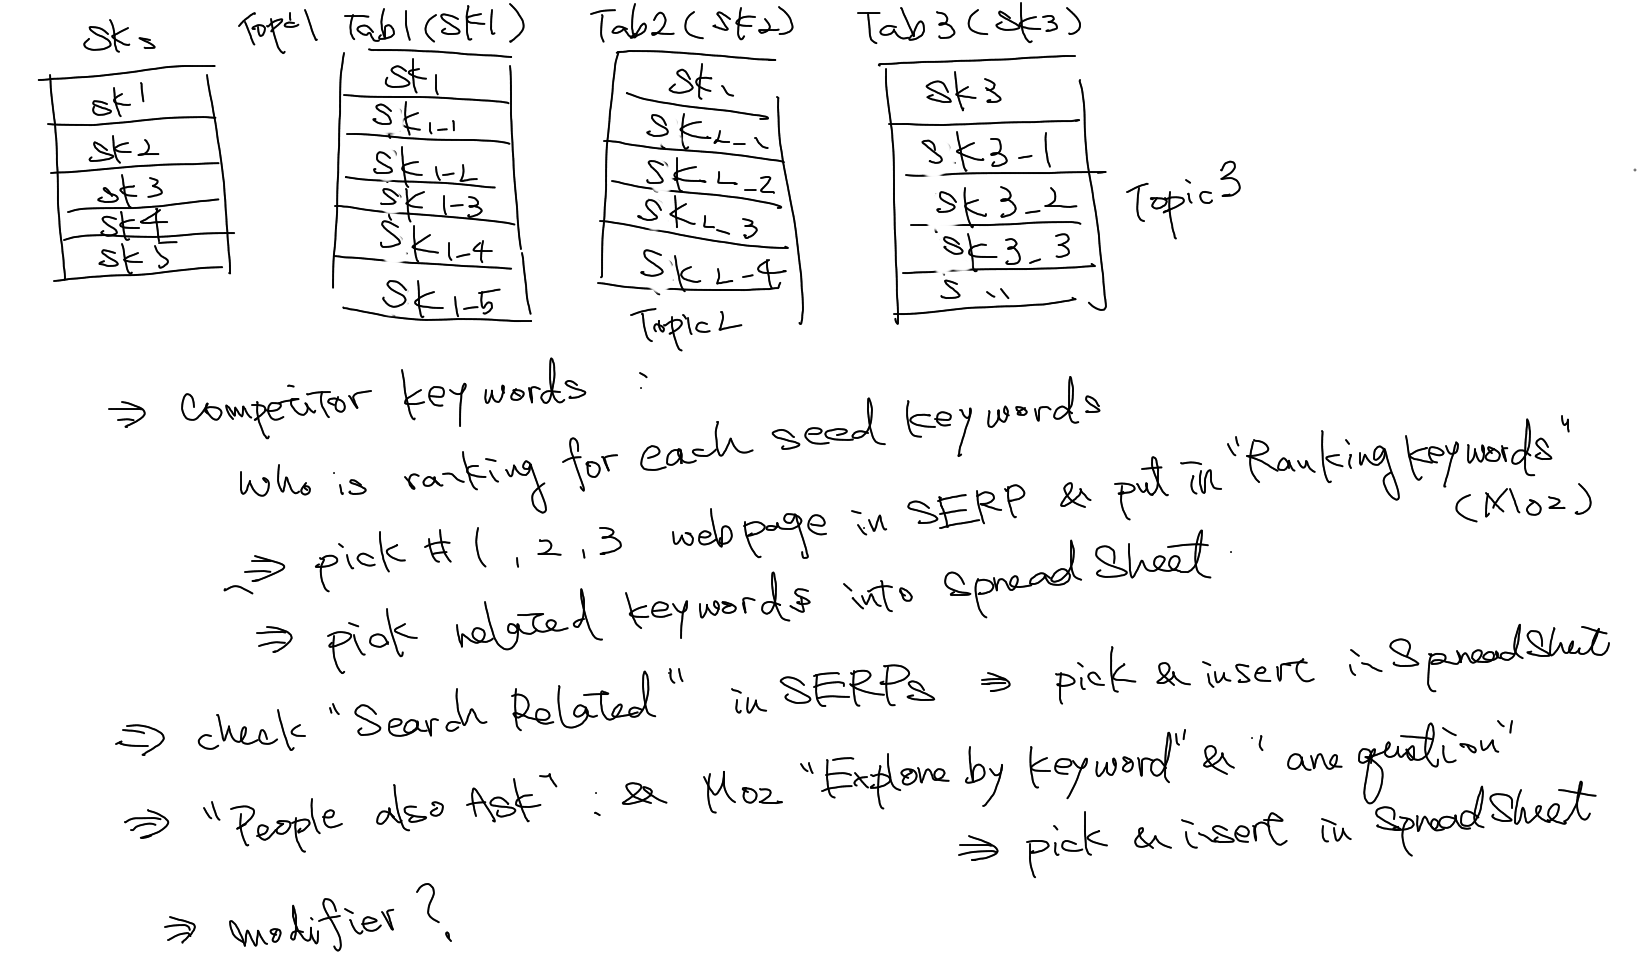 SKs
sk1
sk2
sk3
sk4
sk5
Topic1 Tab1 (SK1)
SK1
SK1-1
SK1-2
SK1-3
SK1-4
SK1-5
Tab2 (SK2)
SK2
SK2-1
SK2-2
SK2-3
SK2-4
Topic2
Tab3 (SK3)
SK3
SK3-1
SK3-2
SK3-3
S ..
Topic3
⇒ competitor keywords :
who is ranking for each seed keywords
⇒ pick #1, 2, 3 webpage in SERP & put in "Ranking keywords"
(Moz)
⇒ pick related keywords into SpreadSheet.
⇒ check "Search Related" in SERPs ⇒ pick & insert in SpreadSheet
⇒ "People also Ask" : & Moz "Explore by keyword" & "are question"
⇒ pick & insert in SpreadSheet
⇒ modifier ?